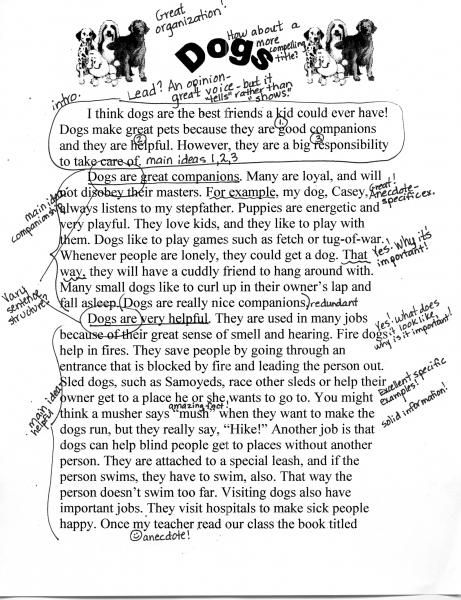 Great
organization!
How about a
more
compelling
title?
Dogs
Lead? An opinion-
great voice - but it
"tells" rather than
"shows."
intro.
I think dogs are the best friends a kid could ever have!
1. 2. 3.
Dogs make great pets because they are good companions
and they are helpful. However, they are a big responsibility
to take care of. main ideas 1,2,3
Dogs are great companions. Many are loyal, and will
not disobey their masters. For example, my dog, Casey,
Great!
Anecdote-
specific ex.
main idea
companionship
always listens to my stepfather. Puppies are energetic and
very playful. They love kids, and they like to play with
them. Dogs like to play games such as fetch or tug-of-war.
Whenever people are lonely, they could get a dog. That
Yes! Why it's
important!
way, they will have a cuddly friend to hang around with.
Many small dogs like to curl up in their owner's lap and
fall asleep. Dogs are really nice companions. redundant
Vary
sentence
structure?
Dogs are very helpful. They are used in many jobs
because of their great sense of smell and hearing. Fire dogs
Yes! What does
it look like,
why is it important!
help in fires. They save people by going through an
entrance that is blocked by fire and leading the person out.
Sled dogs, such as Samoyeds, race other sleds or help their
owner get to a place he or she wants to go to. You might
Excellent specific
examples!
solid information!
amazing fact!
main idea
helpful
think a musher says "mush" when they want to make the
dogs run, but they really say, "Hike!" Another job is that
dogs can help blind people get to places without another
person. They are attached to a special leash, and if the
person swims, they have to swim, also. That way the
person doesn't swim too far. Visiting dogs also have
important jobs. They visit hospitals to make sick people
happy. Once my teacher read our class the book titled
anecdote!